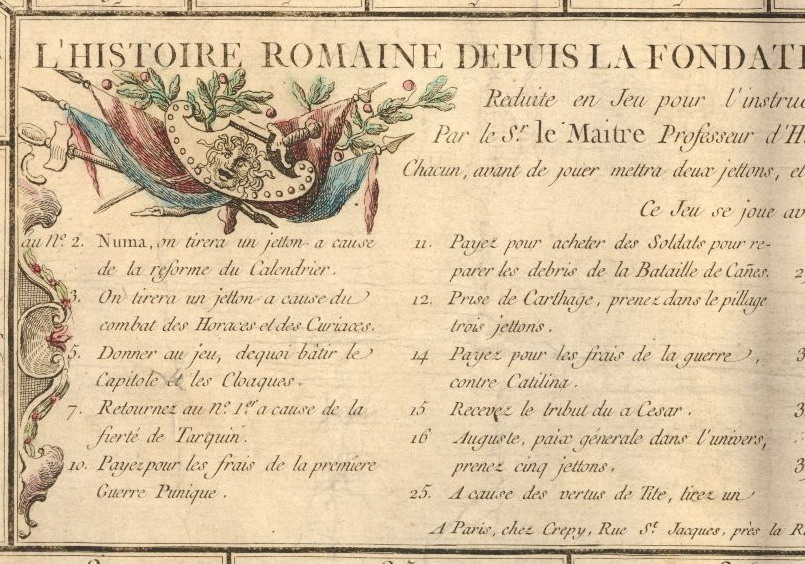 L'HISTOIRE ROMAINE DEPUIS LA FONDATI
Reduite en Jeu pour l'instruc
Par le S.r le Maitre Professeur d'H
Chacun, avant de jouer mettra deux jettons, et
Ce Jeu se joue av
au N.o 2. Numa, on tirera un jetton a cause
de la reforme du Calendrier.
3. On tirera un jetton a cause du
combat des Horaces et des Curiaces.
5. Donner au jeu, dequoi bâtir le
Capitole et les Cloaques.
7. Retournez au n.o 1.er a cause de la
fierté de Tarquin.
10. Payez pour les frais de la premiere
Guerre Punique.
11. Payez pour acheter des Soldats pour re-
parer les debris de la Bataille de Cañes.
12. Prise de Carthage, prenez dans le pillage
trois jettons.
14 Payez pour les frais de la guerre,
contre Catilina.
15 Recevez le tribut du a Cesar.
16 Auguste, paix génerale dans l'univers,
prenez cinq jettons.
25. A cause des vertus de Tite, tirez un
A Paris, chez Crepy, Rue S.t Jacques, près la R